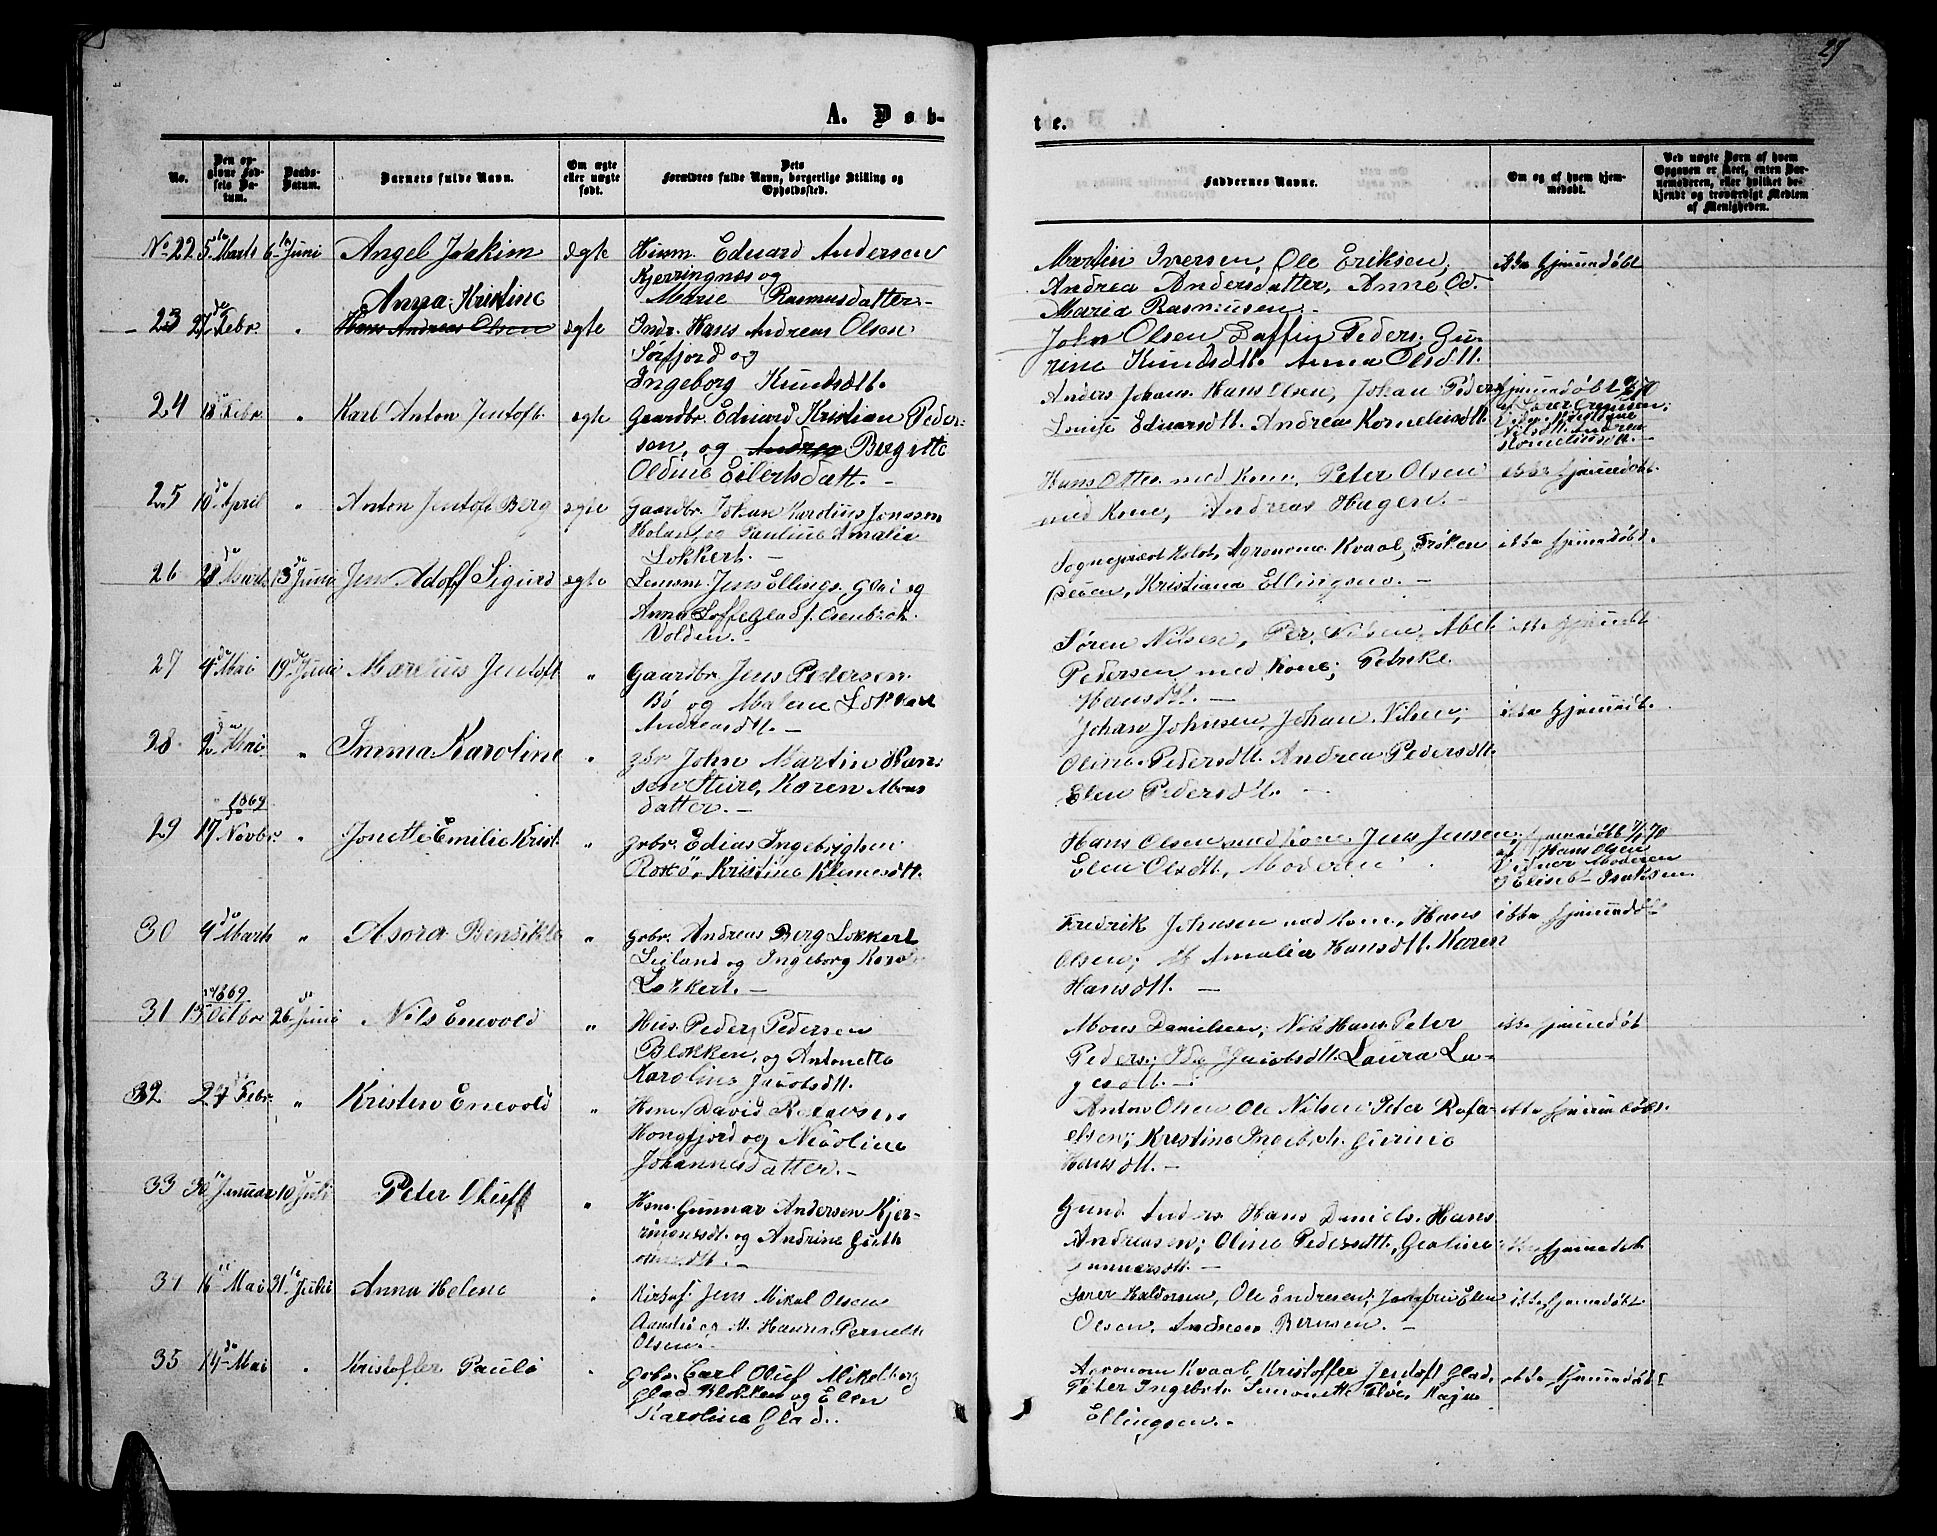 29
A. Døb-
te.
No.
Den op-
givne Fød-
sels Da-
tum.
Daabs-
Datum.
Barnets fulde Navn.
Om ægte
eller uægte
født.
Dets
Forældres fulde Navn, borgerlige Stilling og
Opholdssted.
Faddernes Navne.
Om og af hvem hjem-
medøbt.
Ved uægte Børn af hvem
Opgaven er skeet, enten Bar-
nemoderen, eller hvilket be-
kjendt og troværdigt Medlem
af Menigheden.
No 22 5te Marts 6te Juni Angel Joakim ægte Husm. Eduard Andersen
Kjerringnæs og
Marie Rasmusdatter.-
Martin Iversen, Ole Eriksen,
Andrea Andersdatter, Anne Od.
Maria Rasmusen.-
ikke hjemmedøbt
23 27 do Febr. " Anna Kristine
Hans Andreas Olsen ægte Indr. Hans Andreas Olsen
Sørfjord og
Ingeborg Knudsdtt.
John Olsen Peders. Gu-
rine Knudsdtt. Anna Olsdtt.
24 18 do Febr. " Karl Anton Jentoft ægte Gaardbr. Eduard Kristian Peder-
sen, og Andrea Bergitte
Oldine Eilertsdatt.-
Anders Johans. Hans Olsen, Johan Peders
Louise Eduardsdtt. Andrea Kornelius dtt.
hjemmedøbt
Nilsdtt. Andrea
Korneliusdtt.-
25 10 do April " Anton Jentoft Berg ægte Gaardbr. Johan Karolius Jonassen
Holand, og Pauline Amalie
Lokkert.-
Hans Ottes. med Kone, Peter Olsen
med Kone, Andreas Hagen.-
ikke hjemmedøbt.
26 28 do Marts 13 do Juni Jens Adolf Sigurd ægte Lensm. Jens Ellings. Glad og
Anna Glad f.
Volden.-
Sognepræst Holst, Agronome Kvaal, Frøken
Kristiana Ellingsens.-
ikke hjemmedøbt.
27 9 do Mai 19 do Juni Marelius Jentoft " Gaardbr. Jens Pedersen
Bø og Malene Lokkert
Andreasdtt.-
Søren Nilsen, Per Nilsen, Abel
Pedersen med Kone; Petrike
Hansdtt.-
ikke hjemmedøbt
28 2 do Mai " Imma Karoline " gbr. John Martin Han
sen Sture, Karen Mons
datter.-
Johan Johnsen, Johan Nilsen;
Oline Pedersdtt. Andrea Pedersdtt.
Elen Pedersdtt.-
ikke hjemmedøbt.
1869
29 17 do Novbr. " Jonette Emilie Krist. " grbr. Edias Ingebrigtsen
Kristine Klemesdtt.
Hans Olsen med Kone. Jens Jensen
Elen Olsdtt., Moderen
hjemmedøbt 7/1 70
af Hans Olsen
Vidner Moderen
Eliseb. Isaksen
30 9 do Marts " Asora Bendikte " grbr. Andreas Berg Lokkert
Leiland og Ingeborg
Lokkert.-
Fredrik Johnsen med Kone, Hans
Olsen; M Amalia Hansdtt. Karen
Hansdtt.-
ikke hjemmedøbt
1869
31 15 Octbr. 26 do Juni Nils Enevold " Hus. Peder Pedersen
Blokken, og Antonette
Karoline Jacobsdtt.
Mons Danielsen; Nils Hans. Peter
Peders; Ida Jacobsdtt. Laura La-
gesdtt.-
ikke hjemmedøbt
32 27 do Febr. " Kristen Enevold " Hsm. David
Hongfjord og Nicoline
Johannesdatter.-
Anton Olsen Ole Nilsen Peter Rafa-
elsen; Kristine Ingebrtd. Gurine
Hansdtt.-
ikke hjemmedøbt.
33 30 Januar 10 Juli Peter Oluf " Hsm. Gunnar Andersen Kjer-
og Andrine
Gund. Anders. Hans Daniels. Hans
Andreasen; Oline Pedersdtt.,
Gunnersdtt.-
ikke hjemmedøbt
34 16 Mai 31te Julii Anna Helene " Jens Mikal Olsen
og M. Hanna Pernelle
Olsen.
Ole Endresen,
Olsen. Andrea Bernsen.-
ikke hjemmedøbt
35 14 do Mai " Kristoffer Paulo " grbr. Carl Oluf Mikelborg
Glad. Blokken og Elen
Karoline Glad.
Agronom Kvaal, Kristoffer Jentoft Glad,
Peter Ingebr. Simonette
Ellingsen.-
ikke hjemmedøbt